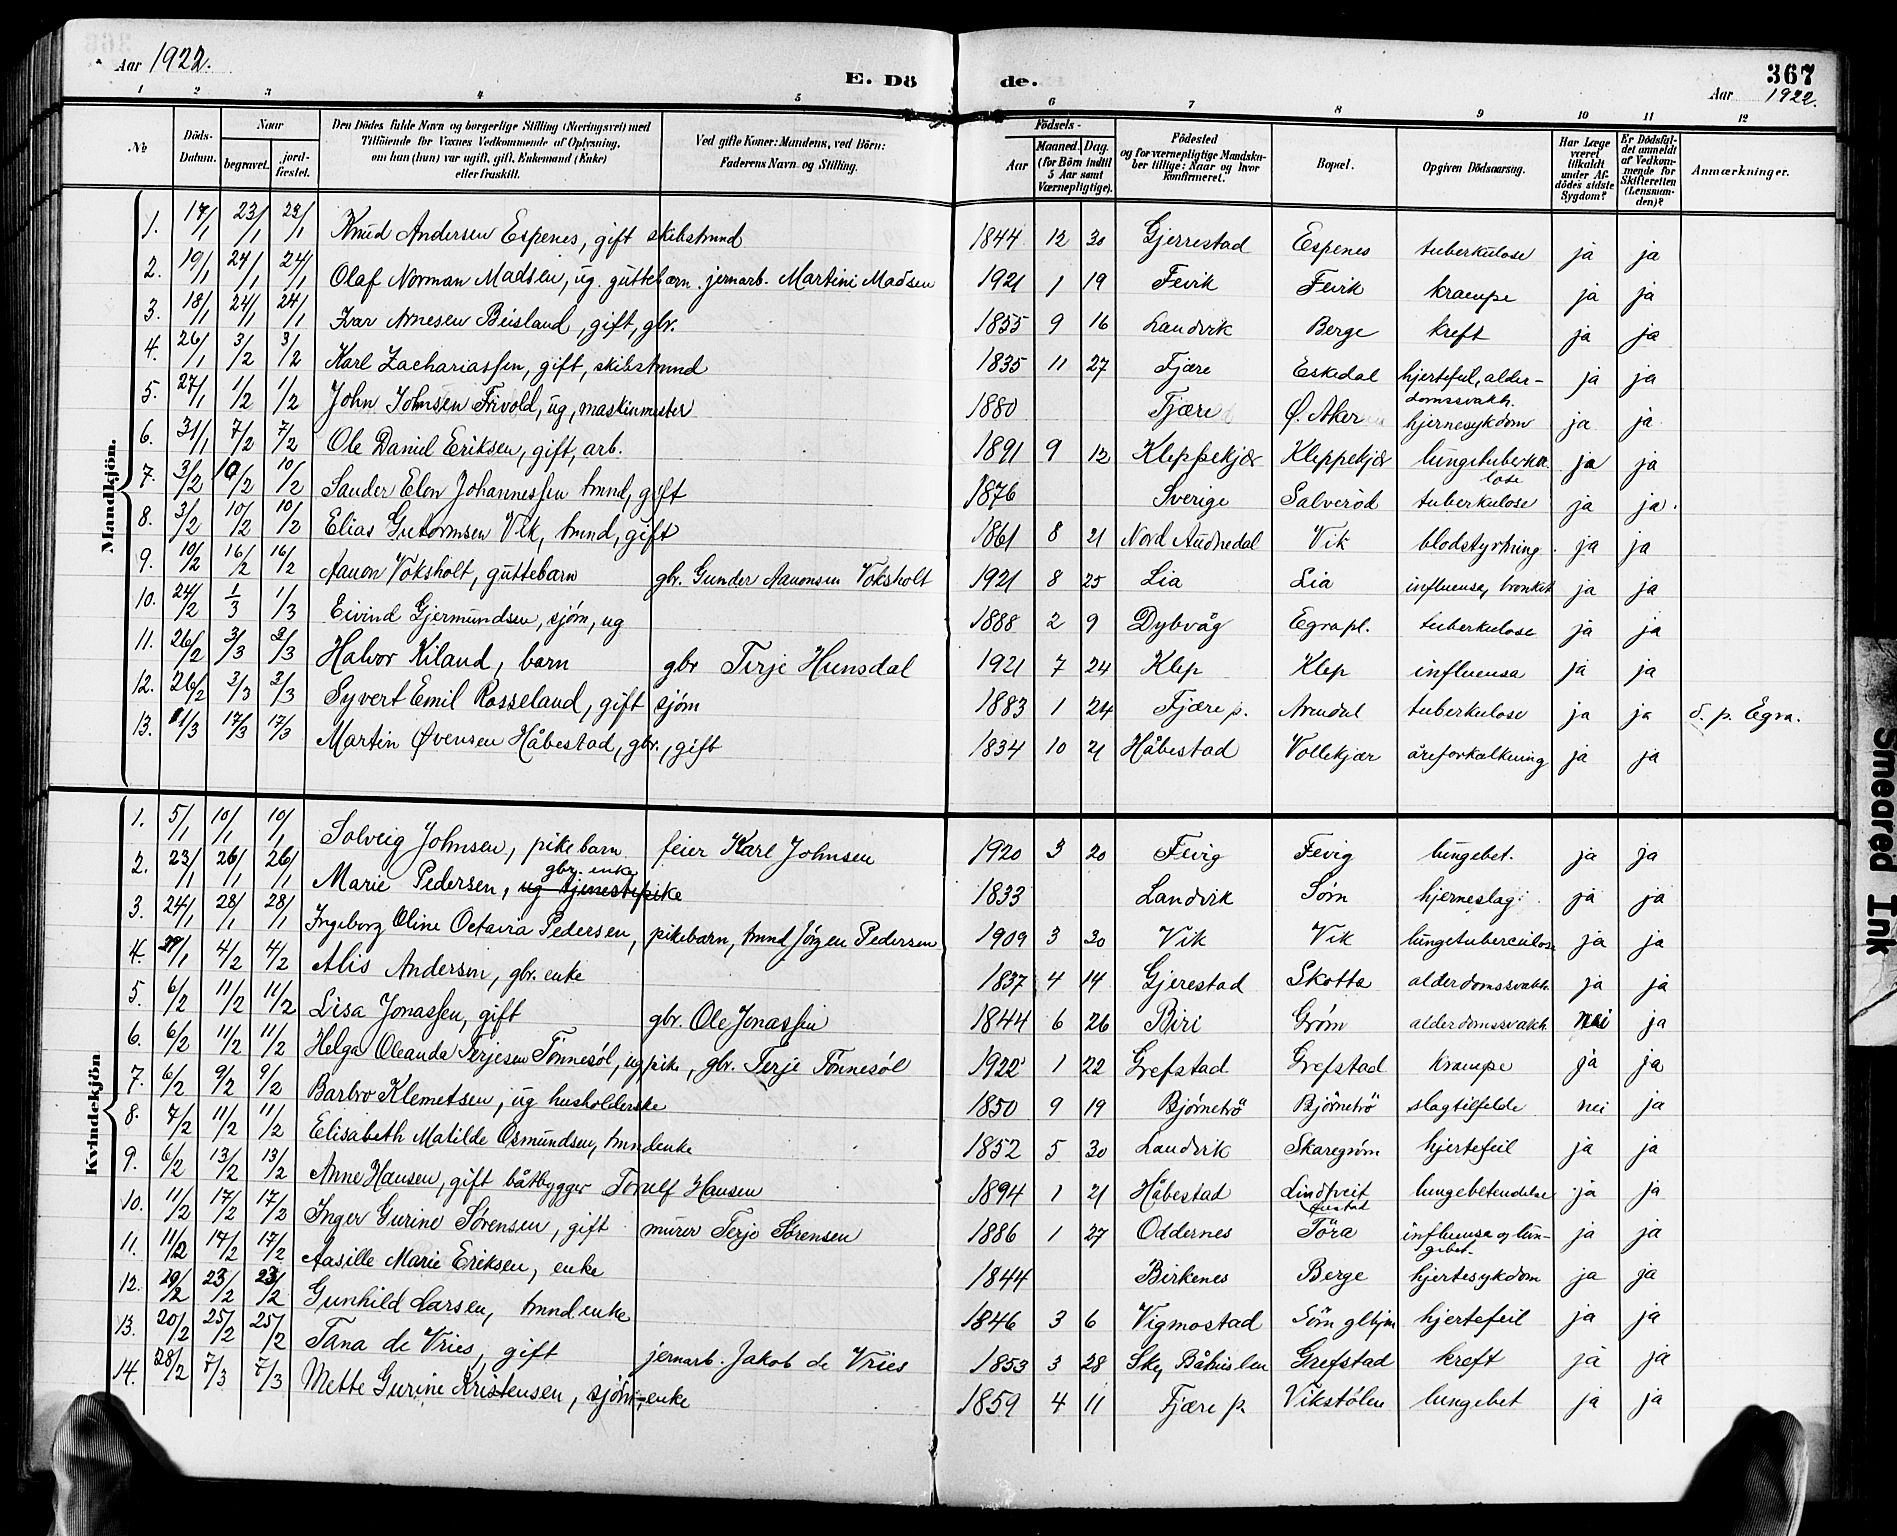 Aar 1922.
E. Dö de.
367
Aar 1922.
1 2 3 4 5 6 7 8 9 10 11 12
No
Döds-Datum.
Naar
begravet.
jord-fæstet.
Den Dödes fulde Navn og borgerlige Stilling (Næringsvei) med
Tilföiende for Voxnes Vedkommende af Oplysning,
om han (hun) var ugift, gift, Enkemand (Enke)
eller fraskilt.
Ved gifte Koner: Mandens, ved Börn:
Faderens Navn og Stilling.
Födsels-
Aar
Maaned. Dag.
(for Börn indtil
5 Aar samt
Værnepligtige).
Födested
og for værnepligtige Mandskaber tillige: Naar og hvor
konfirmeret.
Bopæl.
Opgiven Dödsaarsag.
Har Læge
været
tilkaldt
under Afdödes sidste
Sygdom?
Er Dödsfaldet anmeldt
af Vedkommende for
Skifteretten
(Lensmanden)?
Anmærkninger.
Mandkjön.
1. 17/1 23/1 23/1 Knud Andersen Espenes, gift skibstmnd 1844 12 30 Gjerrestad Espenes tuberkulose ja ja
2. 19/1 24/1 24/1 Olaf Norman Madsen, ug. guttebarn. jernarb. Martini Madsen 1921 1 19 Fevik Fevik krampe ja ja
3. 18/1 24/1 24/1 Ivar Arnesen Beisland, gift, gbr. 1855 9 16 Landvik Berge kreft ja ja
4. 26/1 3/2 3/2 Karl Zachariassen, gift, skibstmnd 1835 11 27 Fjære Eskedal hjertefeil, alderdomssvakh. ja ja
5. 27/1 1/2 1/2 John Johnsen Frivold, ug, maskinmester 1880 Fjære Ø. Aker hjernesykdom ja ja
6. 31/1 7/2 7/2 Ole Daniel Eriksen, gift, arb. 1891 9 12 Kleppekjær Kleppekjær lungetuberkulose ja ja
7. 3/2 10/2 10/2 Sander Elen Johannessen tmnd, gift 1876 Sverige Salveröd tuberkulose ja ja.
8. 3/2 10/2 10/2 Elias Gutormsen Vik, tmnd, gift 1861 8 21 Nord Audnedal Vik blodstyrtning. ja ja
9. 10/2 16/2 16/2 Aanon Voksholt, guttebarn gbr. Gunder Aanonsen Voksholt 1921 8 25 Lia Lia influensa, bronkit ja ja
10. 24/2 1/3 1/3 Eivind Gjermundsen, sjöm, ug 1888 2 9 Dybvåg Egrapl. tuberkulose ja ja
11. 26/2 3/3 3/3 Halvor Kiland, barn gbr Terje Hunsdal 1921 7 24 Klep Klep influensa ja ja
12. 26/2 3/3 3/3 Syvert Emil Rosseland, gift sjöm 1883 1 24 Fjære p. Arendal tuberkulose ja ja d. p. Egra.
13. 11/3 17/3 17/3 Martin Øvensen Håbestad, gbr., gift 1834 10 21 Håbestad Vollekjær åreforkalkning ja ja
Kvindekjön
1. 5/1 10/1 10/1 Solveig Johnsen, pikebarn feier Karl Johnsen 1920 3 20 Fevig Fevig lungebet. ja ja
2. 23/1 26/1 26/1 Marie Pedersen, ug tjenestepike gbr. enke 1833 Landvik Søm hjerneslag ja ja
3. 24/1 28/1 28/1 Ingeborg Oline Octavia Pedersen, pikebarn, tmnd Jörgen Pedersen 1909 3 30 Vik Vik lungetuberculose ja ja
4. 29/1 4/2 4/2 Alis Andersen, gbr. enke 1837 4 14 Gjerestad Skotta alderdomssvakh. ja ja
5. 6/2 11/2 11/2 Lisa Jonassen, gift gbr. Ole Jonassen 1844 6 26 Biri Gröm alderdomssvakh. nei ja
6. 6/2 11/2 11/2 Helga Oleanda Terjesen Tönnesöl, ug pike, gbr. Terje Tönnesöl 1922 1 22 Grefstad Grefstad krampe ja ja
7. 6/2 9/2 9/2 Barbro Klemetsen, ug husholderske 1850 9 19 Bjørnetrö Bjørnetrö slagtilfelde nei ja
8. 7/2 11/2 11/2 Elisabeth Matilde Osmundsen, tmndenke 1852 5 30 Landvik Skaregröm hjertefeil ja ja
9. 6/2 13/2 13/2 Anne Hansen, gift båtbygger Torulf Hansen 1894 1 21 Håbestad Lindtveit, lungebetendelse ja ja
10. 11/2 17/2 17/2 Inger Gurine Sörensen, gift murer Terje Sörensen 1886 1 27 Oddernes Töra influensa og lungebet. ja ja
11. 11/2 17/2 17/2 Aasille Marie Eriksen, enke 1844 Birkenes Berge hjertesykdom ja ja
12. 29/2 23/2 23/2 Gunhild Larsen, tmnd.enke 1846 3 6 Vigmostad Söm glhjem hjertefeil ja ja
13. 20/2 25/2 25/2 Tana de Vries, gift jernarb. Jakob de Vries 1853 3 28 Ske, Båhuslen Grefstad kreft ja ja
14. 28/2 7/3 7/3 Mette Gurine Kristensen, sjöm.enke 1859 4 11 Fjære p. Vikstölen lungebet ja ja
Smeared Ink